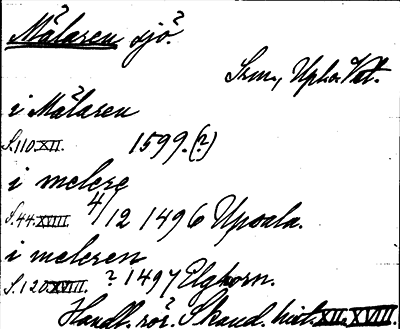 Mälaren sjö.
Srm., Upl. o. Vstl.
i Mälaren
S.110.XII. 1599.(?)
i melere
S.44.XVIII. 4/12 1496 Upsala.
i meleren
S.120.XVIII. ? 1497 Elghorn.
Handl. rör. Skand. hist. XII. XVIII.